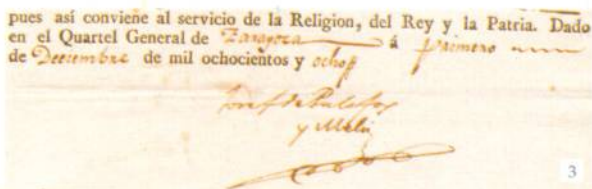 pues así conviene al servicio de la Religion, del Rey y la Patria. Dado
en el Quartel General de Zaragoza á primero
de Deciembre de mil ochocientos y ocho
Josef de Palafox
y Melci
3